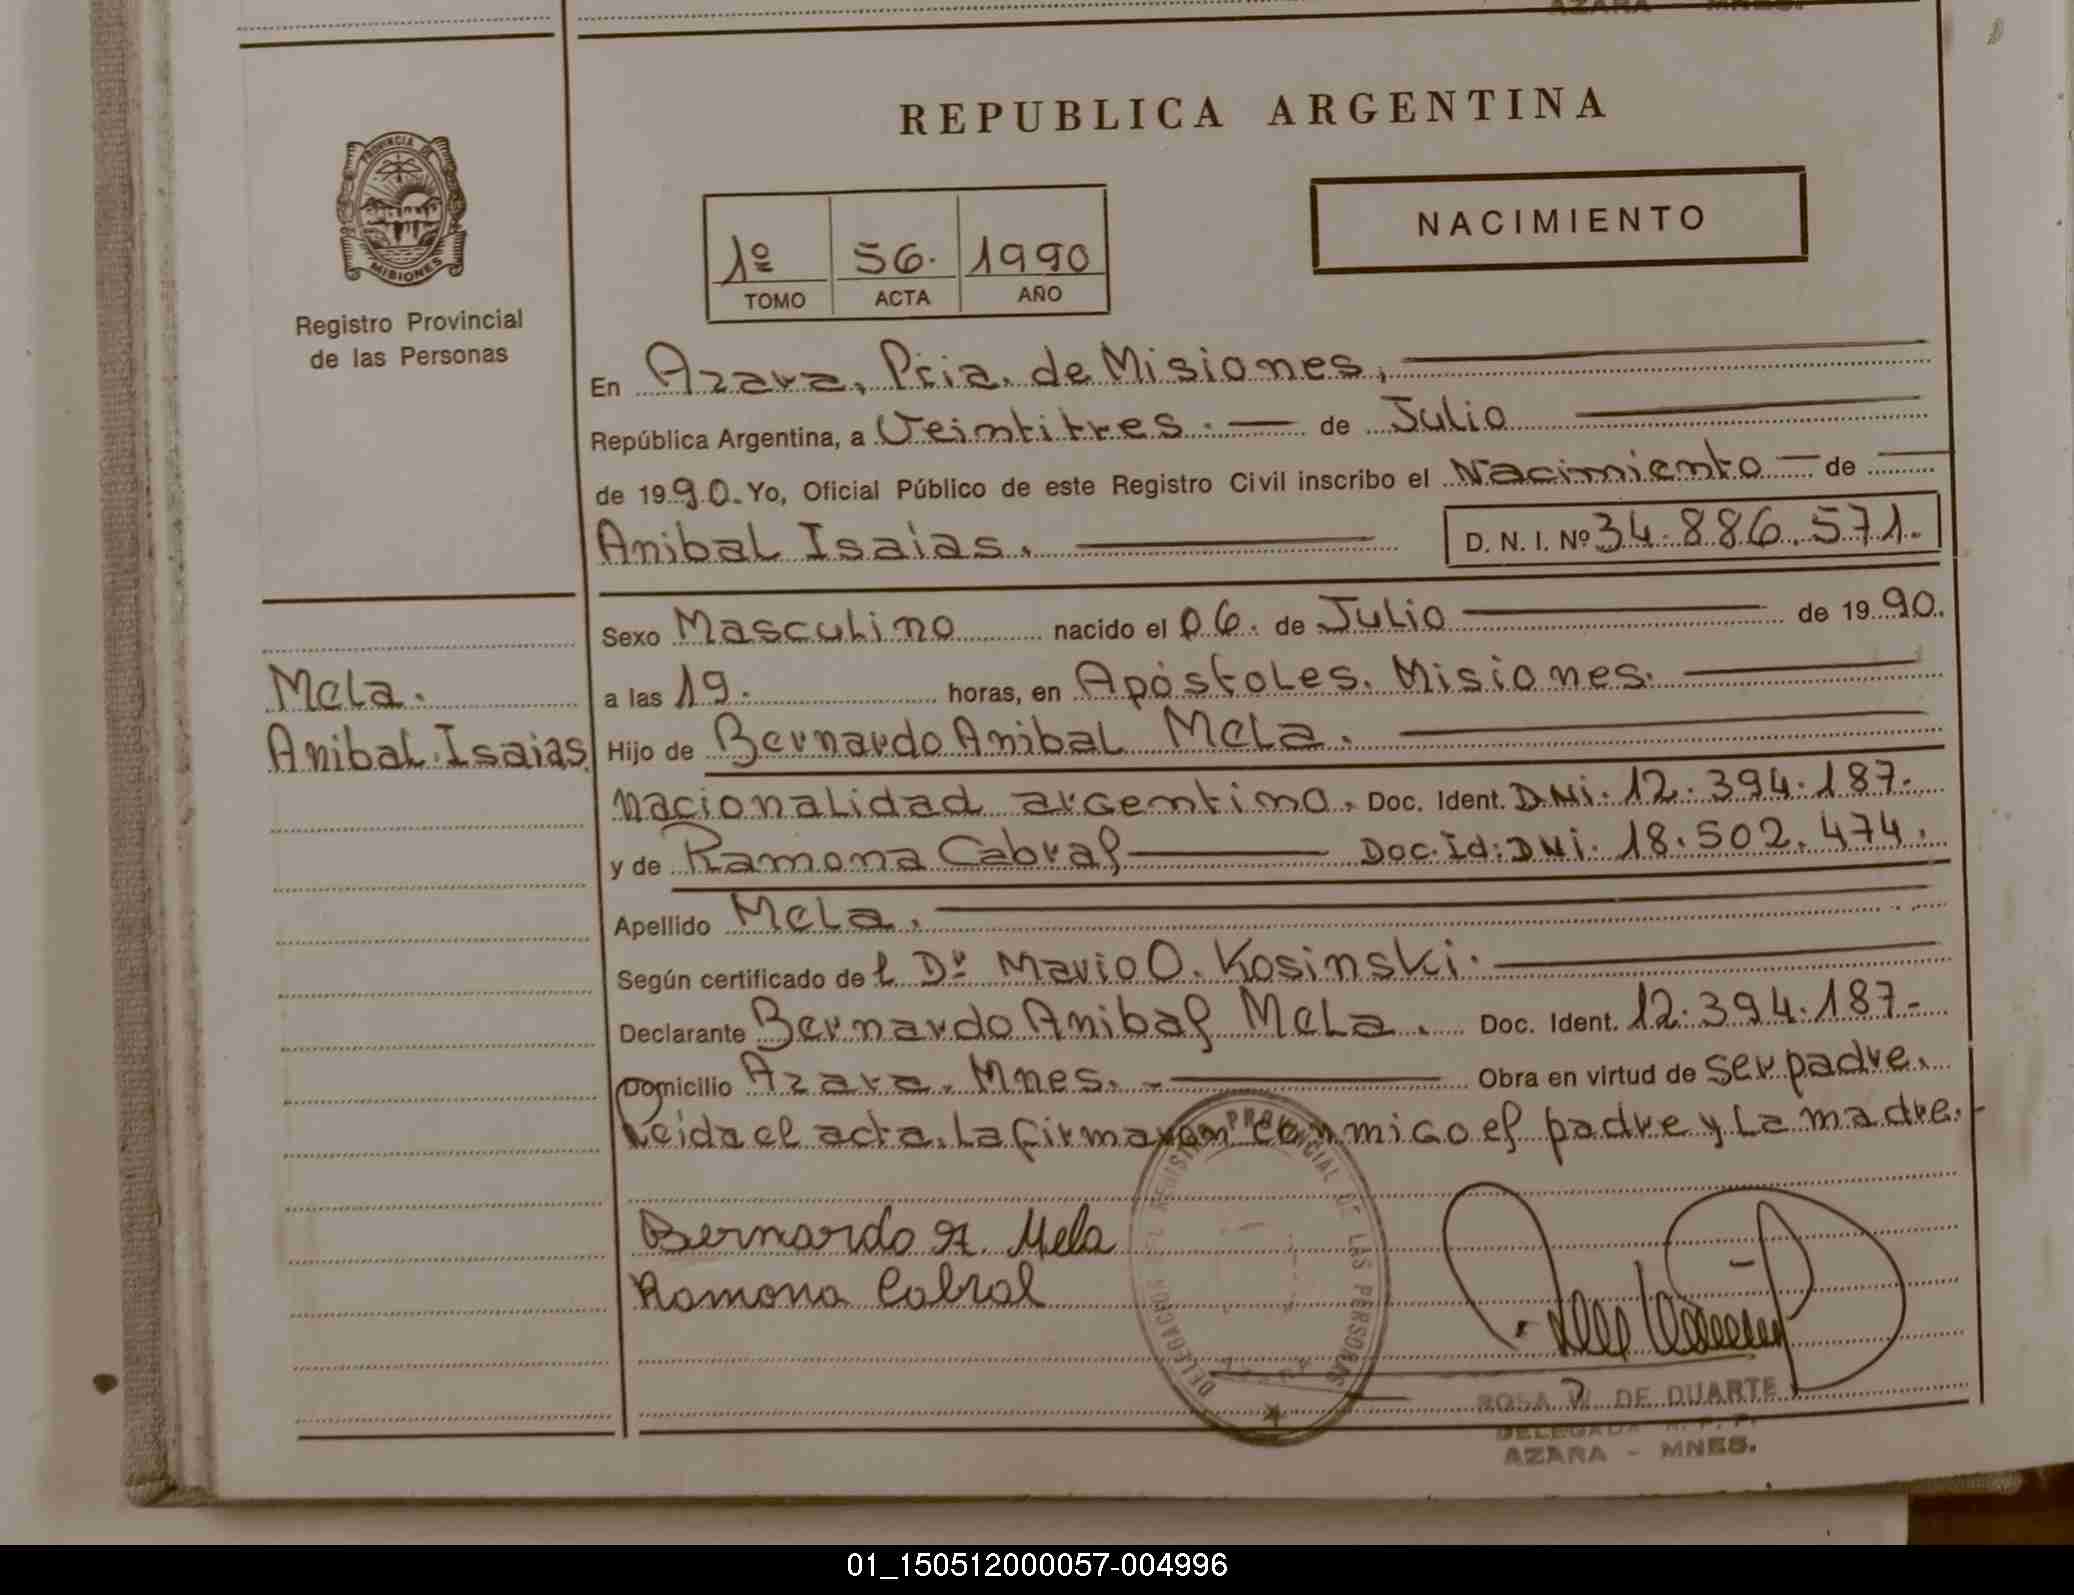 AZARA - MNES.
REPUBLICA ARGENTINA
PROVINCIA DE
MISIONES
Registro Provincial
de las Personas
NACIMIENTO
1º 56. 1990
TOMO ACTA AÑO
En Azara, Pcia. de Misiones,
República Argentina, a Veintitres. de Julio
de 1990. Yo, Oficial Público de este Registro Civil inscribo el Nacimiento de
Anibal Isaias. D. N. I. Nº 34.886.571.
Sexo Masculino nacido el 06. de Julio de 1990.
Mela.
a las 19. horas, en Apóstoles. Misiones.
Anibal Isaias.
Hijo de Bernardo Anibal Mela.
nacionalidad argentina. Doc. Ident. DNi. 12.394.187.-
y de Ramona Cabral Doc. Id: DNi. 18.502.474.
Apellido Mela.
Según certificado del Dr Mario O. Kosinski.
Declarante Bernardo Anibal Mela. Doc. Ident. 12.394.187-
Domicilio Azara. Mnes. - Obra en virtud de ser padre.
Leida el acta. La firmaron conmigo el padre y La madre.-
Bernardo A. Mela
Ramona Cabral
DELEGACION DEL REGISTRO PROVINCIAL DE LAS PERSONAS
AZARA
ROSA W. DE DUARTE
DELEGADA R. P. P.
AZARA - MNES.
01_150512000057-004996